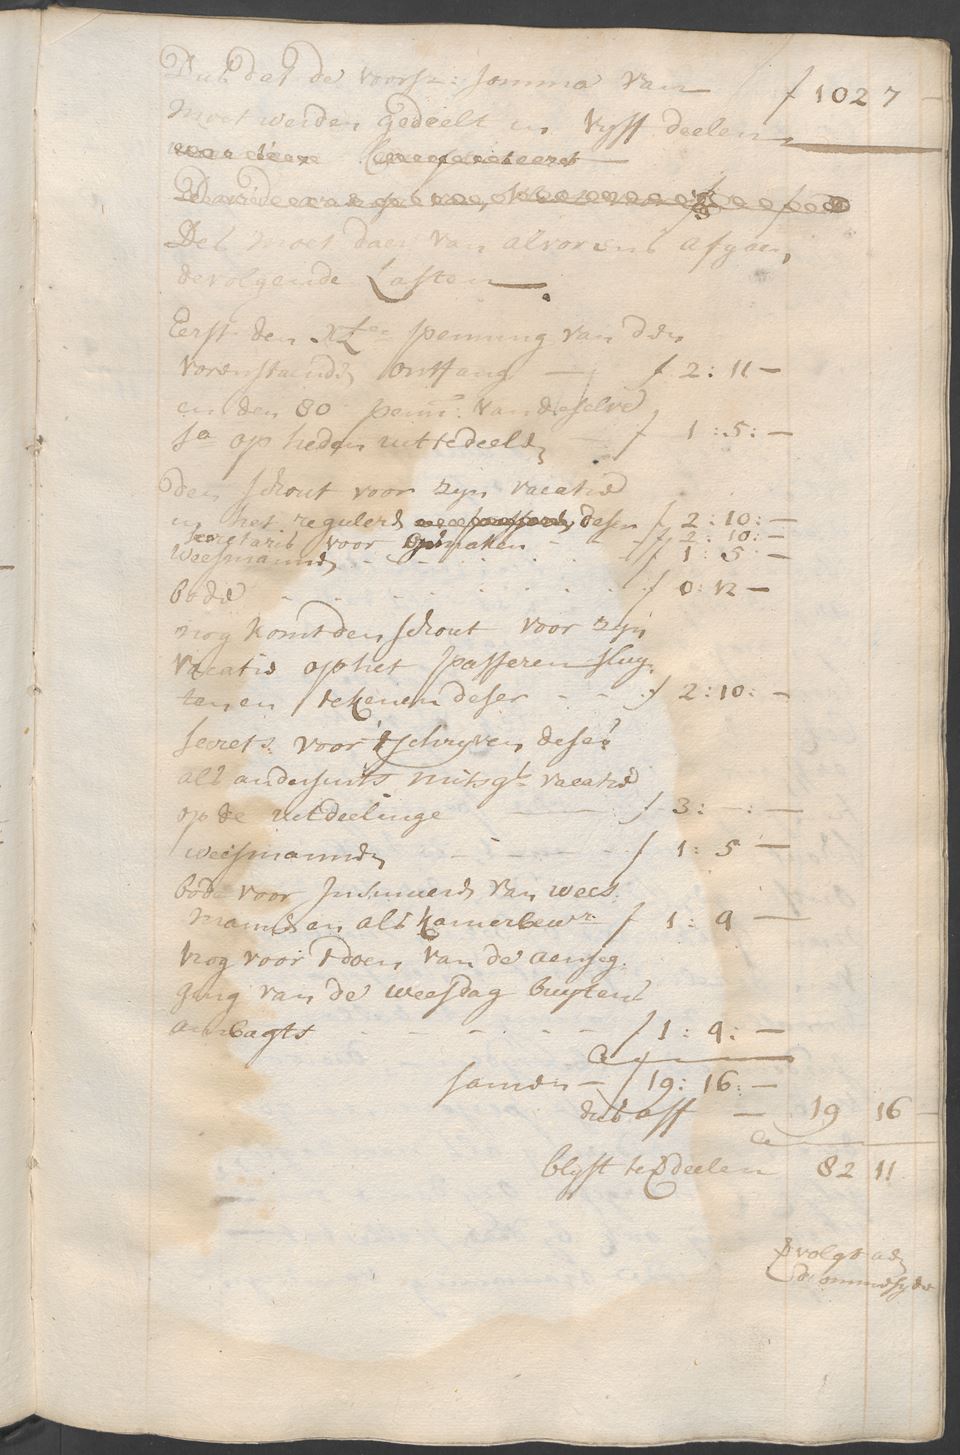 Dus dat de voorsz: somma van f 102 7 —
Moet werden gedeelt in vyff deelen
Des moet daer van alvorens afgaen,
de volgende Lasten
Eerst den XLen penning van den
vorenstaenden ontfang — f 2 : 11 —
en den 80 penn: van deselve
so op heden uittedeelen — f 1 : 5 : —
den schout voor zyn vacatie
in het reguleren deser f 2 : 10 : —
secretaris voor opmaken - - - f 2 : 10 : —
Weesmannen - - - f 1 : 5 —
bode - - - f 0 : 12 —
nog komt den schout voor zyn
vacatie op het passeren sluy-
ten en tekenen deser - - f 2 : 10 : —
secrets. voor 't schryven deser
als andersints mitsgs. vacatie
op de uitdeelinge — f 3 : — : —
weesmannen - - - f 1 : 5 —
bode voor Insinueren van wees
mannen als kamerbewr: f 1 : 9 —
nog voor 't doen van de aenseg-
ging van de weesdag buytens
ambagts - - - f 1 : 9 : —
samen — f 19 : 16 : —
dus aff — 19 16 —
blyft te deelen 82 11
volgt a
ommesyde